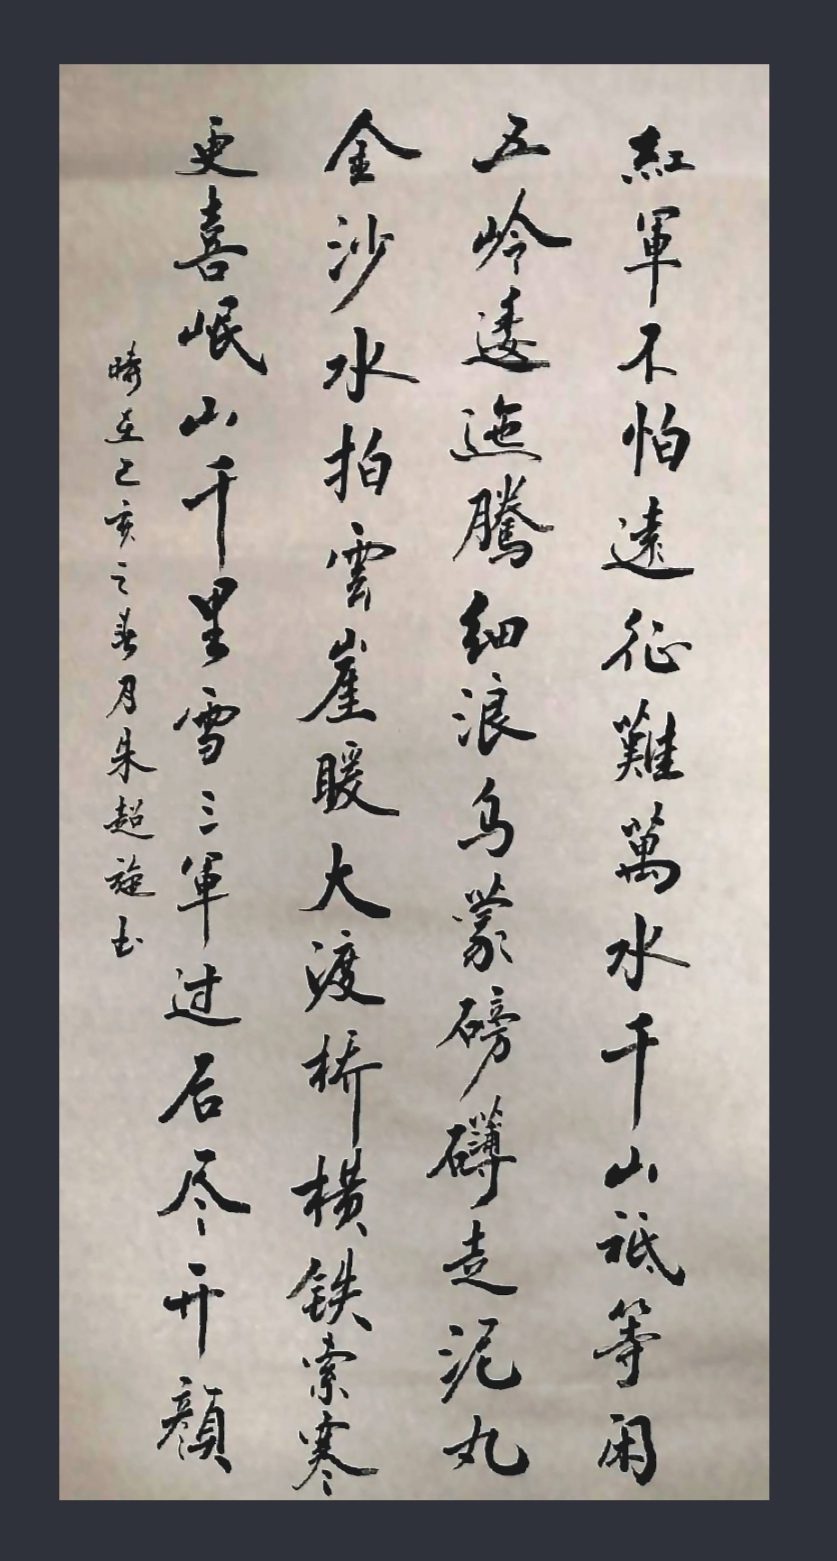 紅軍不怕遠征難萬水千山祗等闲
五岭逶迤騰细浪乌蒙磅礴走泥丸
金沙水拍雲崖暖大渡桥横铁索寒
更喜岷山千里雪三軍过后尽开顔
時在己亥之春月朱超旋书